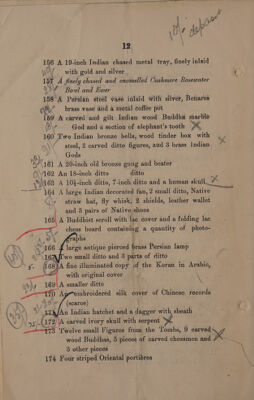 10/- deposit
12
156 A 19-inch Indian chased metal tray, finely inlaid
with gold and silver
157 A finely chased and enamelled Cashmere Rosewater
Bowl and Ewer
158 A Persian steel vase inlaid with silver, Benares
brass vase and a metal coffee pot
159 A carved and gilt Indian wood Buddha marble
God and a section of elephant's tooth
160 Two Indian bronze bells, wood tinder box with
steel, 2 carved ditto figures, and 3 brass Indian
Gods
161 A 20-inch old bronze gong and beater
162 An 18-inch ditto ditto
163 A 10½-inch ditto, 7-inch ditto and a human skull
164 A large Indian decorated fan, 2 small ditto, Native
straw hat, fly whisk, 2 shields, leather wallet
and 3 pairs of Native shoes
165 A Buddhist scroll with lac cover and a folding lac
chess board containing a quantity of photo-
graphs
166 A large antique pierced brass Persian lamp
167 Two small ditto and 3 parts of ditto
168 A fine illuminated copy of the Koran in Arabic,
with original cover
169 A smaller ditto
170 An embroidered silk cover of Chinese records
(scarce)
171 An Indian hatchet and a dagger with sheath
172 A carved ivory skull with serpent
173 Twelve small Figures from the Tombs, 9 carved
wood Buddhas, 5 pieces of carved chessmen and
3 other pieces
174 Four striped Oriental portières